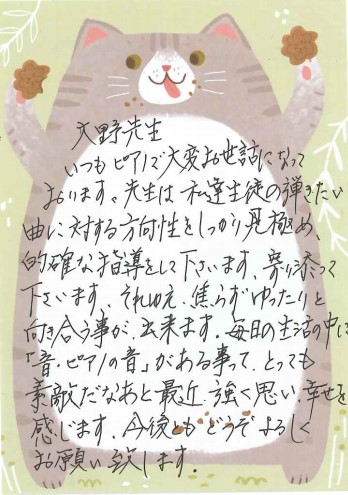 大野先生
いつもピアノで大変お世話になって
おります。先生は私達生徒の弾きたい
曲に対する方向性をしっかり見極め、
的確な指導をして下さいます。寄り添って
下さいます。それゆえ、焦らずゆったりと
向き合う事が、出来ます。毎日の生活の中に
「音・ピアノの音」がある事って、とっても
素敵だなあと最近、強く思い、幸せを
感じます。今後ともどうぞよろしく
お願い致します。